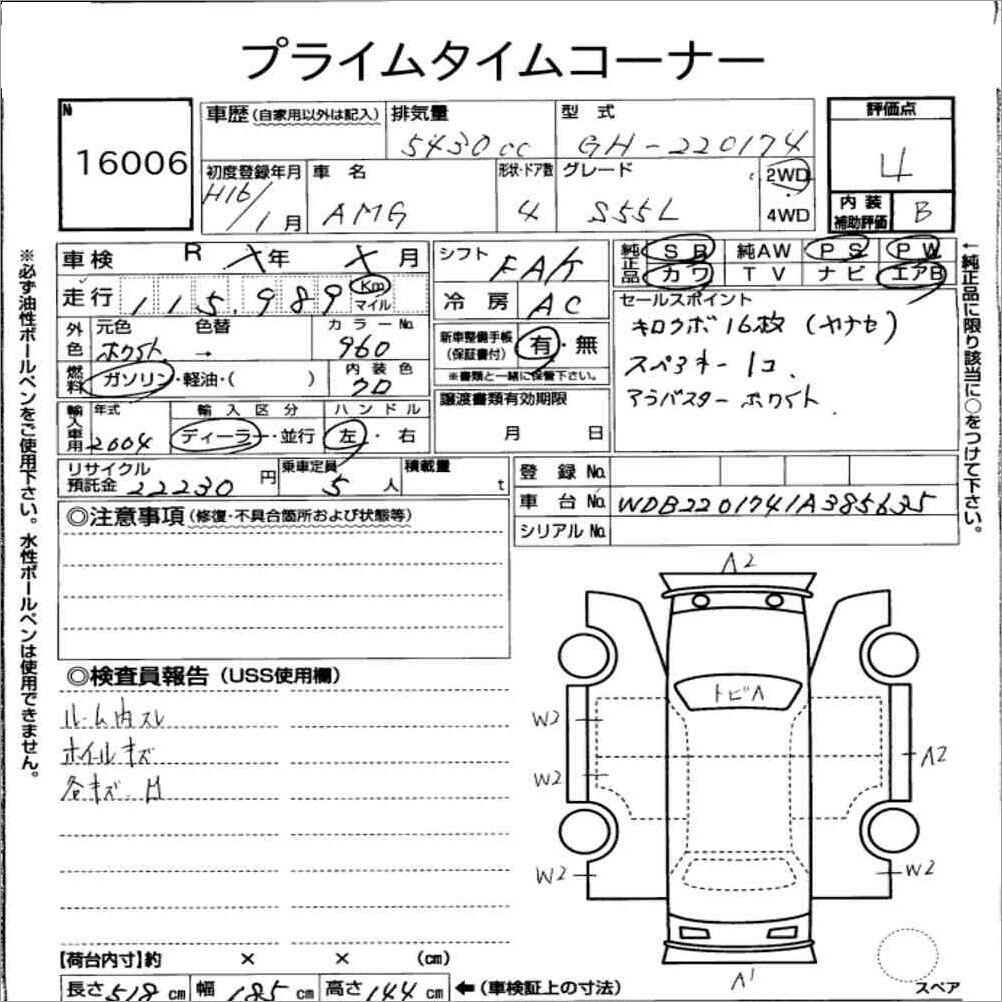 プライムタイムコーナー
№ 16006
車歴(自家用以外は記入) 排気量 5430cc 型式 GH-220174 評価点 4
初度登録年月 H16/1月 車名 AMG 形状・ドア数 4 グレード S55L 2WD・4WD
内装補助評価 B
※必ず油性ボールペンをご使用下さい。水性ボールペンは使用できません。
車検 R ×年 ×月 シフト FA/T
走行 115,989 Km マイル 冷房 AC
純正品 SR 純AW PS PW
カワ TV ナビ エアB
←純正品に限り該当に○をつけて下さい。
外色 元色 ホワイト 色替 → カラーNo. 960
燃料 ガソリン・軽油・( ) 内装色 クロ
新車整備手帳(保証書付) 有・無
※書類と一緒に保管下さい。
セールスポイント
キロクボ16枚(ヤナセ)
スペアキー1コ.
アラバスターホワイト
輸入車用 年式 2004 輸入区分 ディーラー・並行 ハンドル 左・右
譲渡書類有効期限 月 日
リサイクル預託金 22230円 乗車定員 5人 積載量 t
登録No.
車台No. WDB2201741A385635
シリアルNo.
◎注意事項(修復・不具合箇所および状態等)
◎検査員報告(USS使用欄)
ルーム内スレ
ホイルキズ
各キズ・H
A2
トビA
W2
W2
A2
W2
W2
A1
スペア
【荷台内寸】約 × × (cm)
長さ518cm 幅185cm 高さ144cm ←(車検証上の寸法)